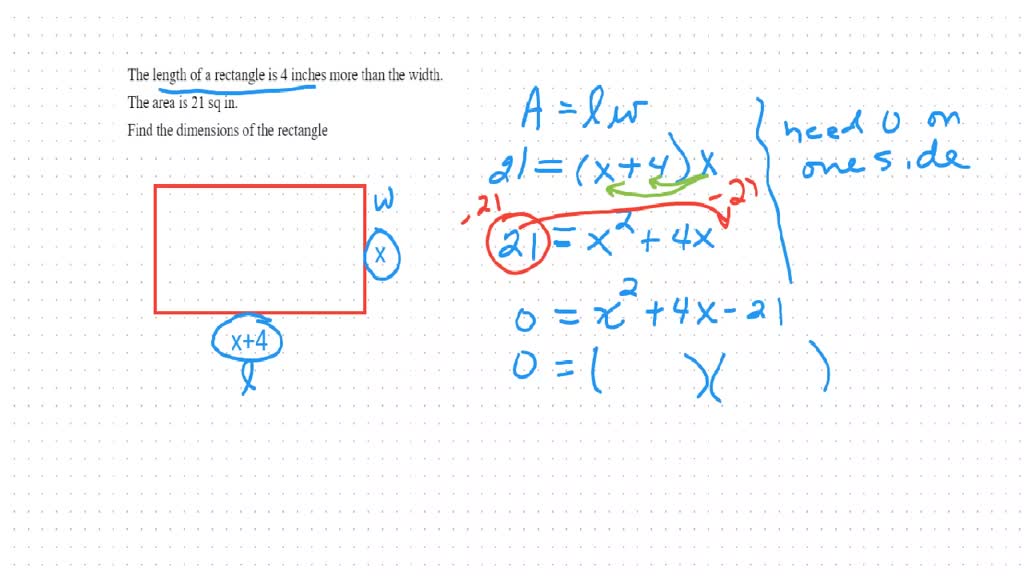 The length of a rectangle is 4 inches more than the width.
The area is 21 sq in.
Find the dimensions of the rectangle
w
x
x+4
l
A = lw
21 = (x+4)x
-21
-21
21 = x² + 4x
0 = x² + 4x - 21
0 = ( )( )
need 0 on
one side